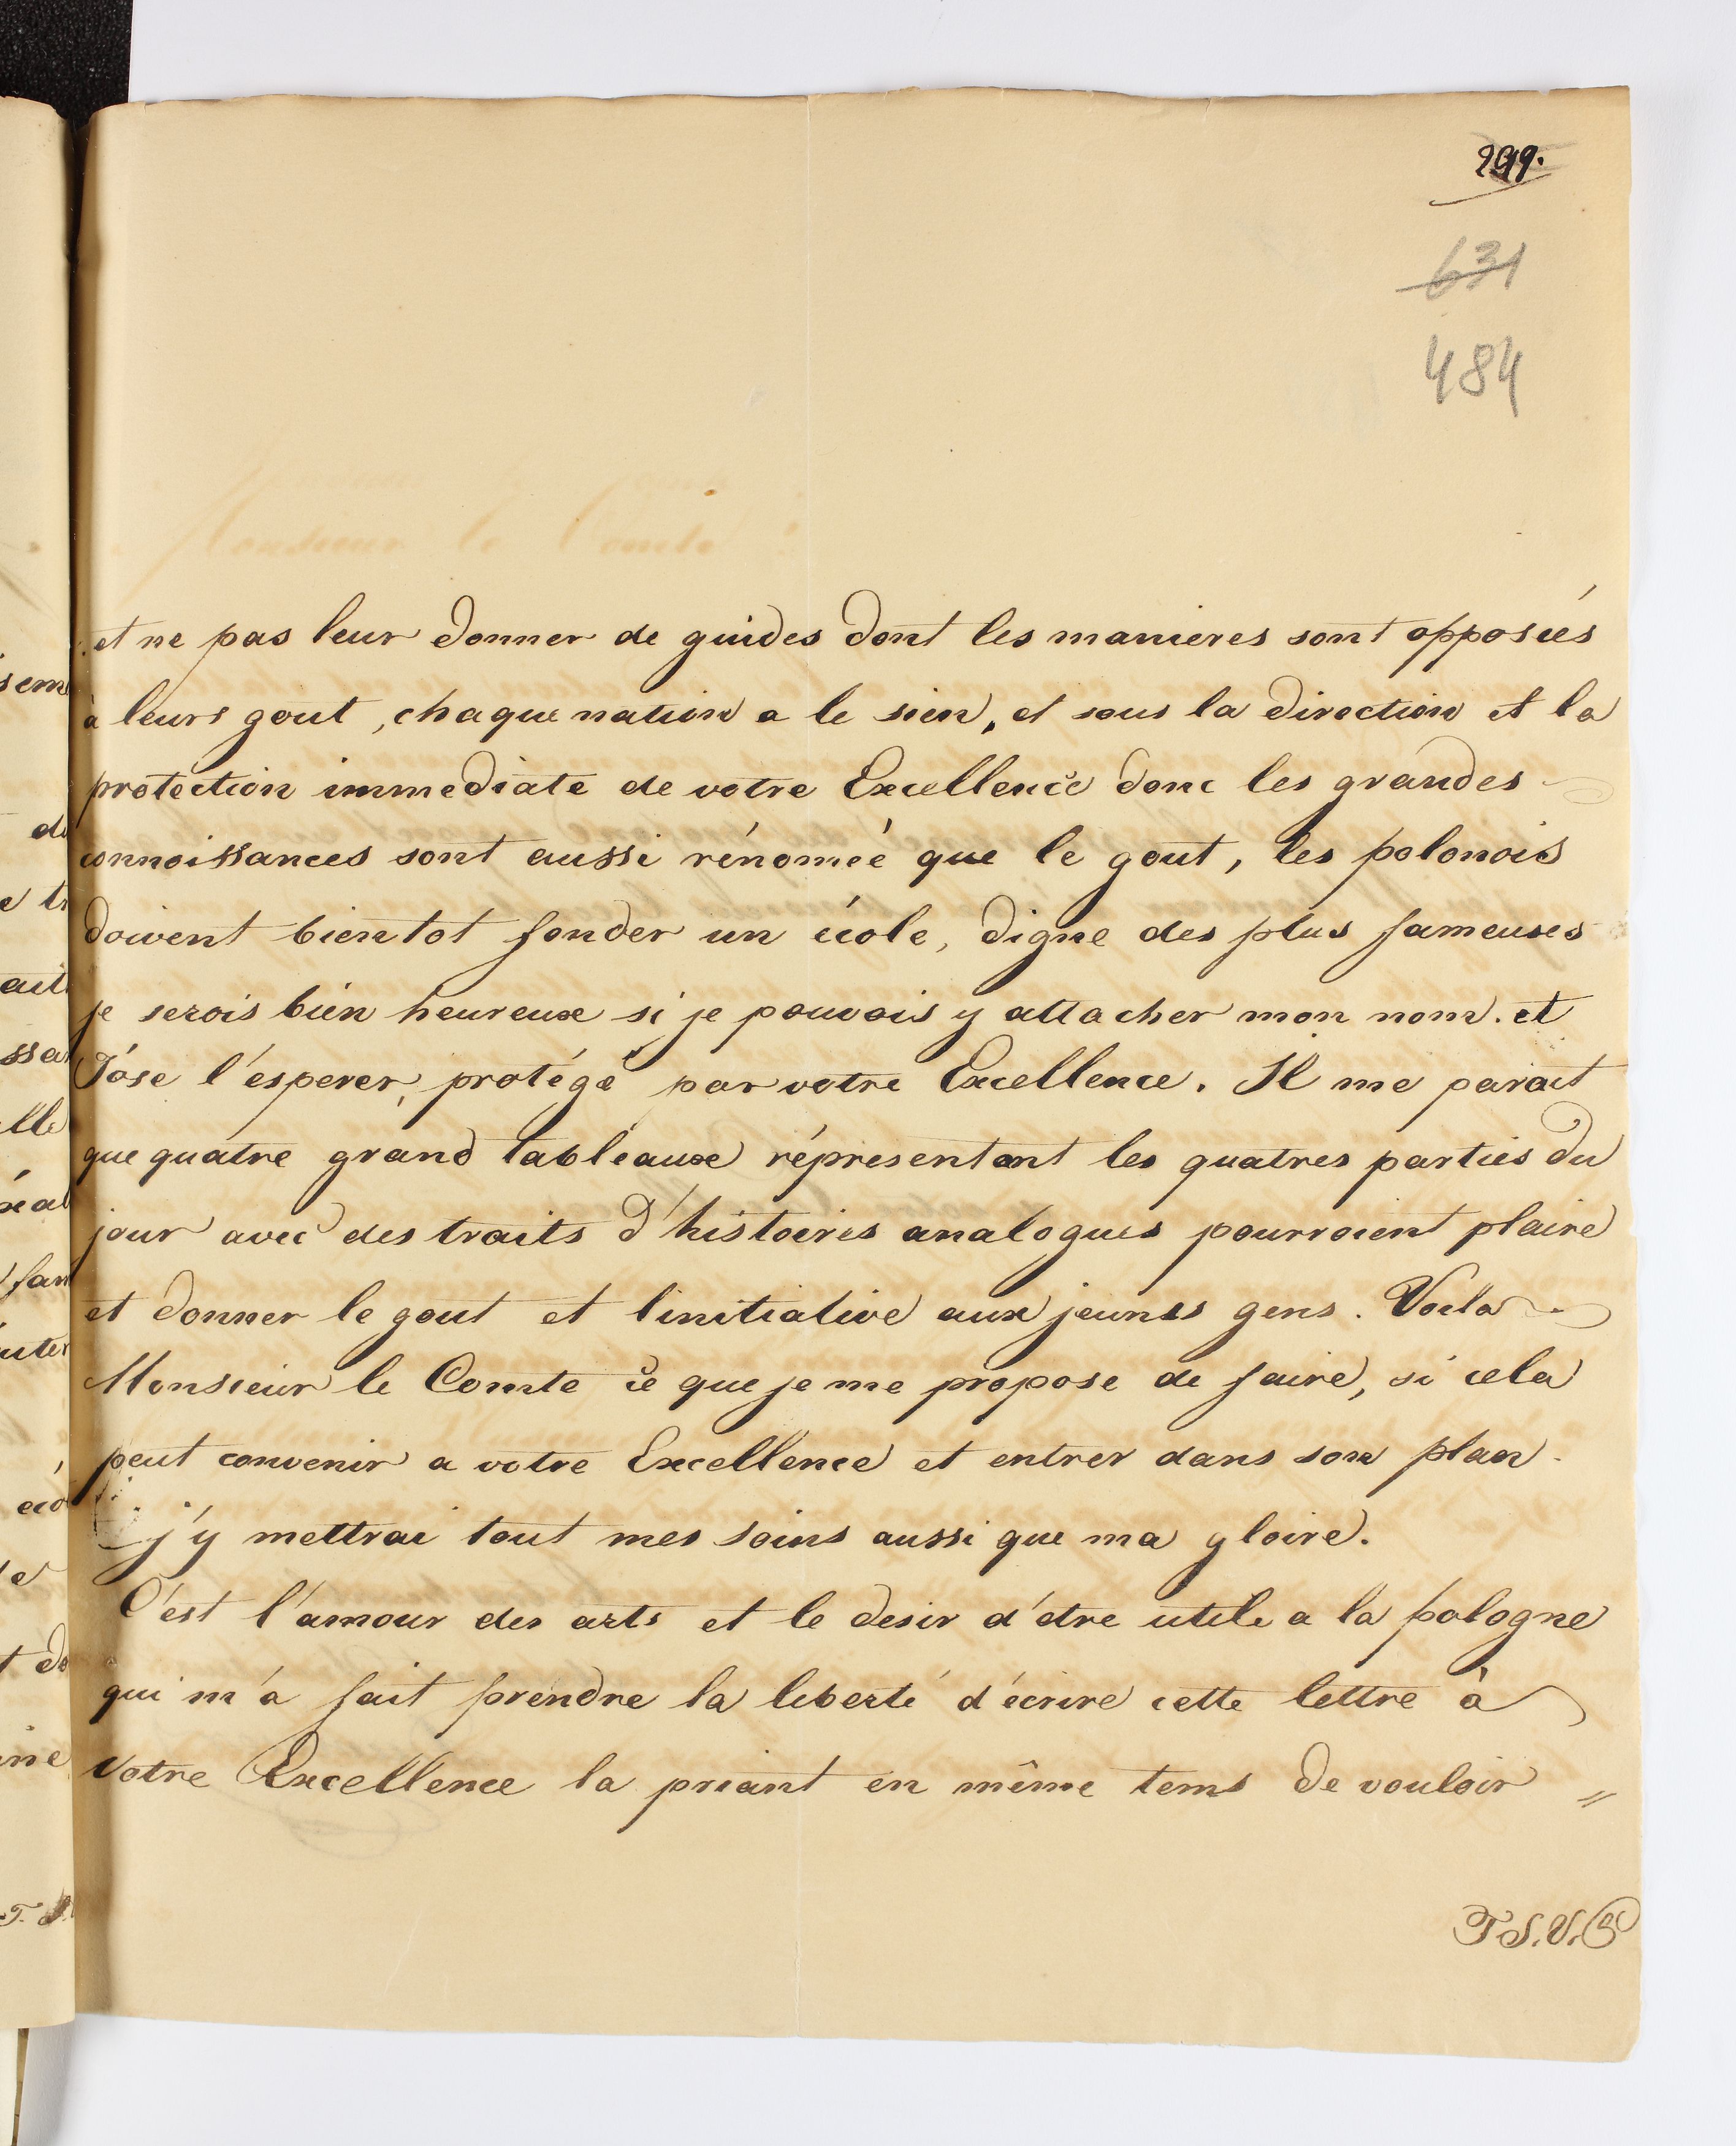 299.
631
484
et ne pas leur donner de guides dont les manieres sont opposées
à leurs gout, chaque nation a le sien, et sous la direction et la
protection immediate de votre Excellence donc les grandes
connoissances sont aussi rénomeé que le gout, les polonois
doivent bientot fonder un école, digne des plus fameuses
je serois bien heureux si je pouvois y attacher mon nom. et
J'óse l'esperer, protégé par votre Excellence. Il me parait
que quatre grand tableaux réprésentant les quatres parties du
jour avec des traits d'histoires analogues pourroient plaire
et donner le gout et linitiative aux jeunes gens. Voila
Monsieur le Comte ce que je me propose de faire, si cela
peut convenir a votre Excellence et entrer dans son plan.
j'y mettrai tout mes soins aussi que ma gloire.
C'est l'amour des arts et le desir d'etre utile a la pologne
qui m'a fait prendre la liberté d'écrire cette lettre à
Votre Excellence la priant en même tems de vouloir //
T.S.V.P